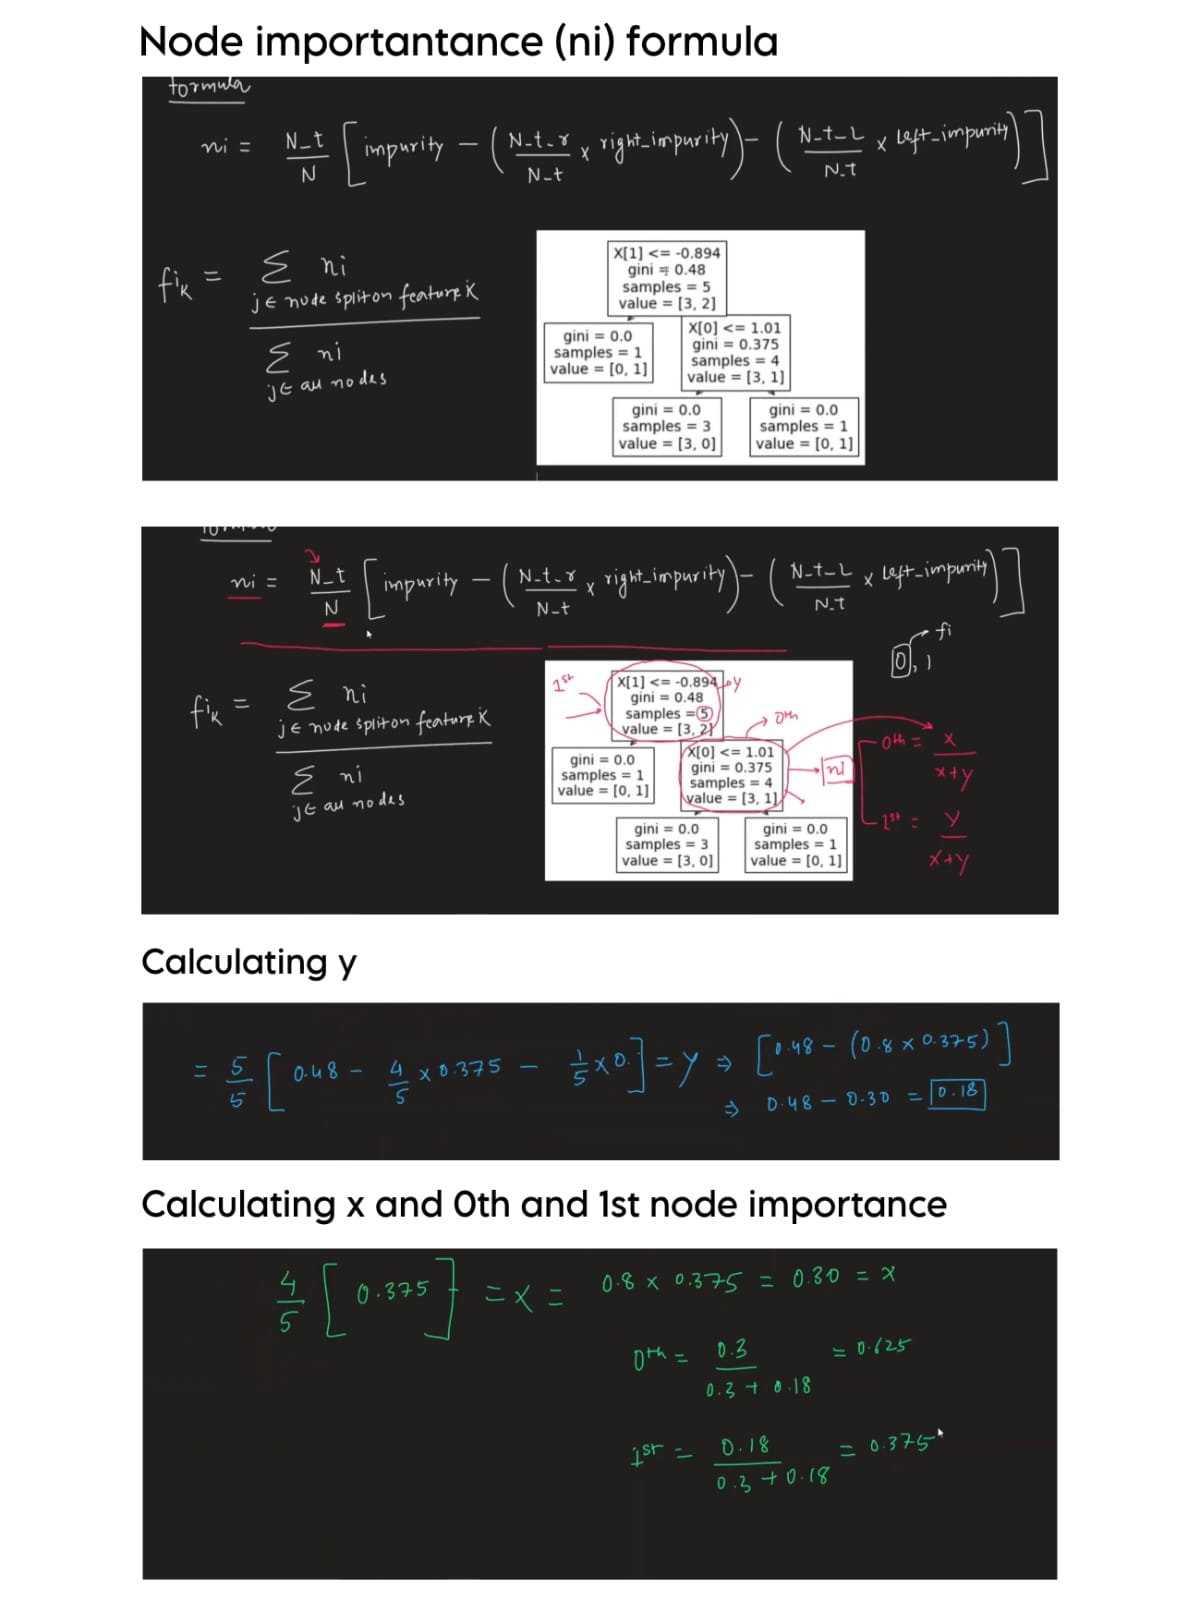 Node importantance (ni) formula
formula
ni = N_t / N [ impurity − ( N_t_r / N_t x right_impurity ) − ( N_t_L / N_t x Left_impurity ) ]
fiₖ = Σ ni
j ∈ node split on feature K
Σ ni
j ∈ all nodes
X[1] <= -0.894
gini = 0.48
samples = 5
value = [3, 2]
gini = 0.0
samples = 1
value = [0, 1]
X[0] <= 1.01
gini = 0.375
samples = 4
value = [3, 1]
gini = 0.0
samples = 3
value = [3, 0]
gini = 0.0
samples = 1
value = [0, 1]
ni = N_t / N [ impurity − ( N_t_r / N_t x right_impurity ) − ( N_t_L / N_t x Left_impurity ) ]
fi
0, 1
fiₖ = Σ ni
j ∈ node split on feature K
Σ ni
j ∈ all nodes
1st
X[1] <= -0.894
gini = 0.48
samples = 5
value = [3, 2]
y
0th
gini = 0.0
samples = 1
value = [0, 1]
X[0] <= 1.01
gini = 0.375
samples = 4
value = [3, 1]
ni
gini = 0.0
samples = 3
value = [3, 0]
gini = 0.0
samples = 1
value = [0, 1]
0th = x / x+y
1st = y / x+y
Calculating y
= 5/5 [ 0.48 − 4/5 x 0.375 − 1/5 x 0. ] = y ⇒ [ 0.48 − (0.8 x 0.375) ]
⇒ 0.48 − 0.30 = 0.18
Calculating x and 0th and 1st node importance
4/5 [ 0.375 ] = x = 0.8 x 0.375 = 0.30 = x
0th = 0.3 / 0.3 + 0.18 = 0.625
1st = 0.18 / 0.3 + 0.18 = 0.375